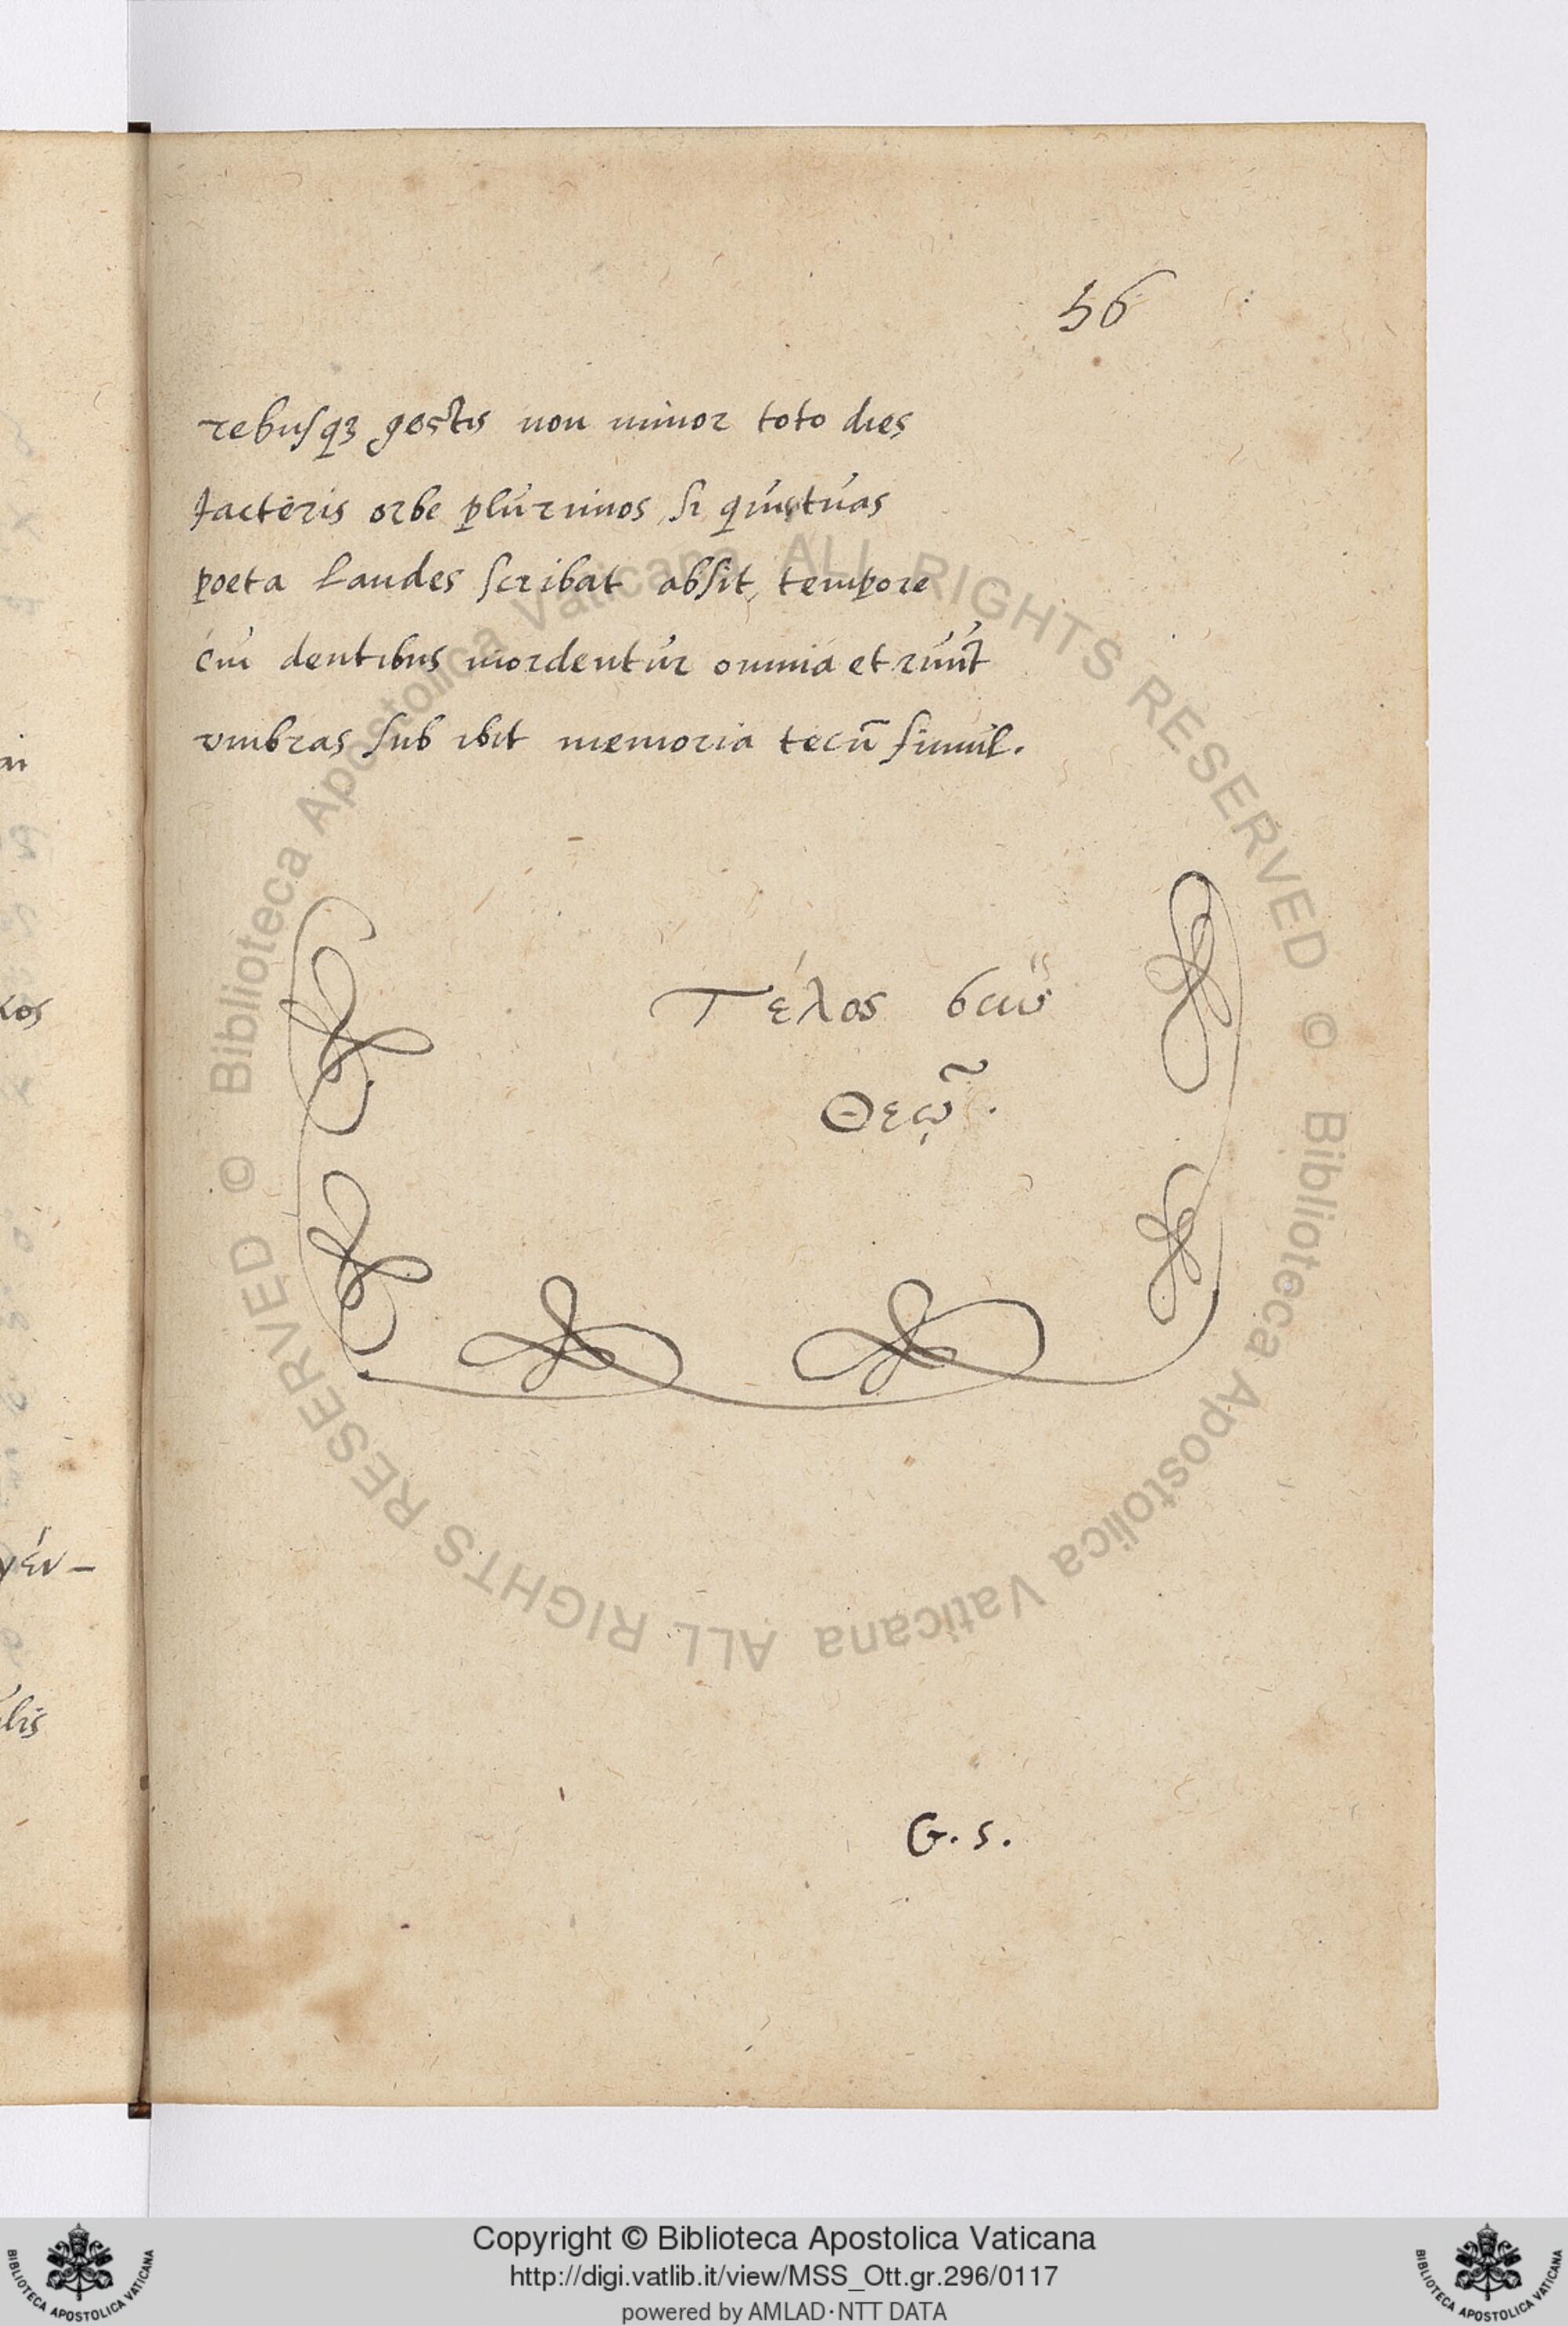 56
rebusqꝫ gestis non minor toto dies
Jacteris orbe plurimos, si quistuas
poeta laudes scribat absit, tempore
cui dentibus mordentur omnia et runt
vmbras sub ibit memoria tecū simul.
Τέλος
Θεῷ.
G. s.
αι
κος
γέν-
lis
Biblioteca Apostolica Vaticana ALL RIGHTS RESERVED © Biblioteca Apostolica Vaticana ALL RIGHTS RESERVED ©
Copyright © Biblioteca Apostolica Vaticana
http://digi.vatlib.it/view/MSS_Ott.gr.296/0117
powered by AMLAD·NTT DATA
BIBLIOTECA APOSTOLICA VATICANA
BIBLIOTECA APOSTOLICA VATICANA